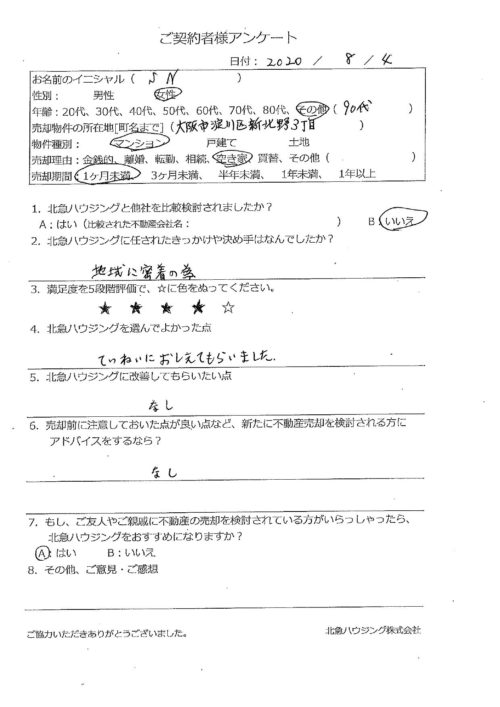 ご契約者様アンケート
日付： 2020 / 8 / 4
お名前のイニシャル（ S N ）
性別： 男性 女性
年齢：20代、30代、40代、50代、60代、70代、80代、その他（ 90代 ）
売却物件の所在地[町名まで]（大阪市淀川区新北野3丁目 ）
物件種別： マンション 戸建て 土地
売却理由：金銭的、離婚、転勤、相続、空き家、買替、その他（ ）
売却期間：1ヶ月未満、 3ヶ月未満、 半年未満、 1年未満、 1年以上
1．北急ハウジングと他社を比較検討されましたか？
A：はい（比較された不動産会社名： ） B：いいえ
2．北急ハウジングに任されたきっかけや決め手はなんでしたか？
地域に密着の為
3．満足度を5段階評価で、☆に色をぬってください。
★ ★ ★ ★ ☆
4．北急ハウジングを選んでよかった点
ていねいにおしえてもらいました.
5．北急ハウジングに改善してもらいたい点
なし
6．売却前に注意しておいた点が良い点など、新たに不動産売却を検討される方に
アドバイスをするなら？
なし
7．もし、ご友人やご親戚に不動産の売却を検討されている方がいらっしゃったら、
北急ハウジングをおすすめになりますか？
A：はい B：いいえ
8．その他、ご意見・ご感想
ご協力いただきありがとうございました。 北急ハウジング株式会社